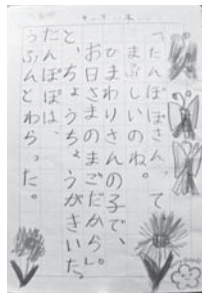 「たんぽぽさん、て
まぶしいのね。
ひまわりさんの子で、
お日さまのまごだから。」
と、ちょうちょうがきいた。
たんぽぽは、
うふんとわらった。